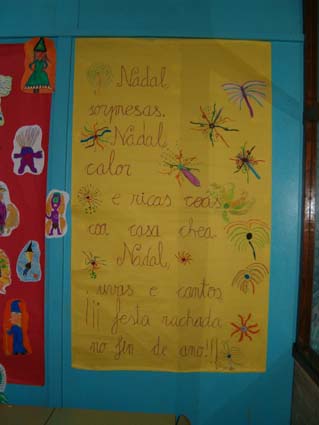 Nadal
sorpresas.
Nadal,
calor
e ricas ceas
coa casa chea.
Nadal,
uvas e cantos
¡¡¡ festa rachada
no fin de ano!!!